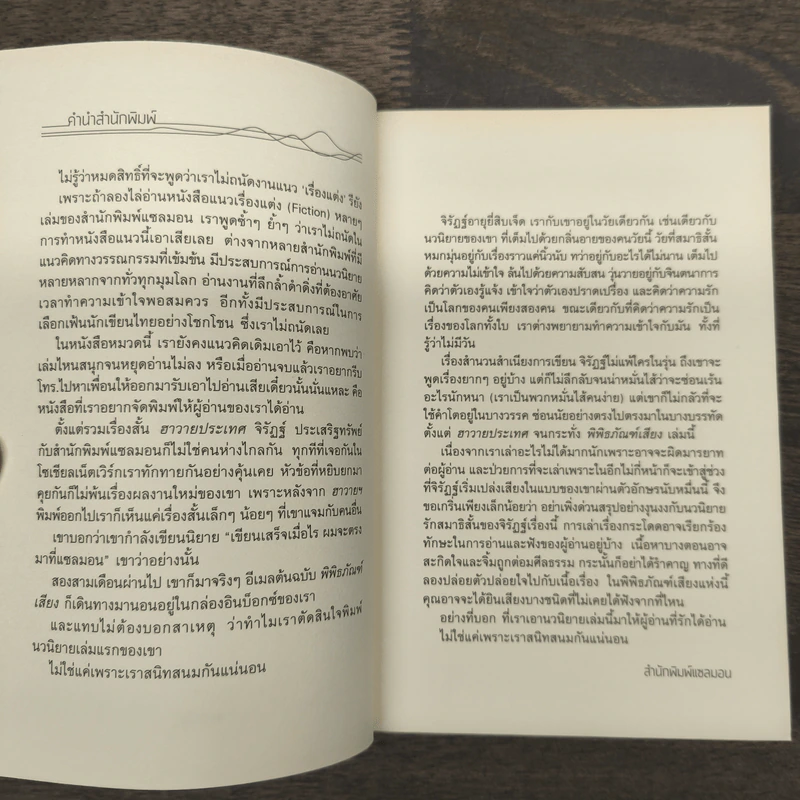 คำนำสำนักพิมพ์
ไม่รู้ว่าหมดสิทธิ์ที่จะพูดว่าเราไม่ถนัดงานแนว 'เรื่องแต่ง' รึยัง
เพราะถ้าลองไล่อ่านหนังสือแนวเรื่องแต่ง (Fiction) หลายๆ
เล่มของสำนักพิมพ์แซลมอน เราพูดซ้ำๆ ย้ำๆ ว่าเราไม่ถนัดใน
การทำหนังสือแนวนี้เอาเสียเลย ต่างจากหลายสำนักพิมพ์ที่มี
แนวคิดทางวรรณกรรมที่เข้มข้น มีประสบการณ์การอ่านนวนิยาย
หลายหลากจากทั่วทุกมุมโลก อ่านงานที่ลึกล้ำดำดิ่งที่ต้องอาศัย
เวลาทำความเข้าใจพอสมควร อีกทั้งมีประสบการณ์ในการ
เลือกเฟ้นนักเขียนไทยอย่างโชกโชน ซึ่งเราไม่ถนัดเลย
ในหนังสือหมวดนี้ เรายังคงแนวคิดเดิมเอาไว้ คือหากพบว่า
เล่มไหนสนุกจนหยุดอ่านไม่ลง หรือเมื่ออ่านจบแล้วเราอยากรีบ
โทร.ไปหาเพื่อนให้ออกมารับเอาไปอ่านเสียเดี๋ยวนั้นนั่นแหละ คือ
หนังสือที่เราอยากจัดพิมพ์ให้ผู้อ่านของเราได้อ่าน
ตั้งแต่รวมเรื่องสั้น ฮาวายประเทศ จิรัฏฐ์ ประเสริฐทรัพย์
กับสำนักพิมพ์แซลมอนก็ไม่ใช่คนห่างไกลกัน ทุกทีที่เจอกันใน
โซเชียลเน็ตเวิร์กเราทักทายกันอย่างคุ้นเคย หัวข้อที่หยิบยกมา
คุยกันก็ไม่พ้นเรื่องผลงานใหม่ของเขา เพราะหลังจาก ฮาวายฯ
พิมพ์ออกไปเราก็เห็นแค่เรื่องสั้นเล็กๆ น้อยๆ ที่เขาแจมกับคนอื่น
เขาบอกว่าเขากำลังเขียนนิยาย “เขียนเสร็จเมื่อไร ผมจะตรง
มาที่แซลมอน” เขาว่าอย่างนั้น
สองสามเดือนผ่านไป เขาก็มาจริงๆ อีเมลต้นฉบับ พิพิธภัณฑ์
เสียง ก็เดินทางมานอนอยู่ในกล่องอินบ็อกซ์ของเรา
และแทบไม่ต้องบอกสาเหตุ ว่าทำไมเราตัดสินใจพิมพ์
นวนิยายเล่มแรกของเขา
ไม่ใช่แค่เพราะเราสนิทสนมกันแน่นอน
จิรัฏฐ์อายุยี่สิบเจ็ด เรากับเขาอยู่ในวัยเดียวกัน เช่นเดียวกับ
นวนิยายของเขา ที่เต็มไปด้วยกลิ่นอายของคนวัยนี้ วัยที่สมาธิสั้น
หมกมุ่นอยู่กับเรื่องราวแค่นิ้วนับ ทว่าอยู่กับอะไรได้ไม่นาน เต็มไป
ด้วยความไม่เข้าใจ ล้นไปด้วยความสับสน วุ่นวายอยู่กับจินตนาการ
คิดว่าตัวเองรู้แจ้ง เข้าใจว่าตัวเองปราดเปรื่อง และคิดว่าความรัก
เป็นโลกของคนเพียงสองคน ขณะเดียวกับที่คิดว่าความรักเป็น
เรื่องของโลกทั้งใบ เราต่างพยายามทำความเข้าใจกับมัน ทั้งที่
รู้ว่าไม่มีวัน
เรื่องสำนวนสำเนียงการเขียน จิรัฏฐ์ไม่แพ้ใครในรุ่น ถึงเขาจะ
พูดเรื่องยากๆ อยู่บ้าง แต่ก็ไม่ลึกลับจนน่าหมั่นไส้ว่าจะซ่อนเร้น
อะไรนักหนา (เราเป็นพวกหมั่นไส้คนง่าย) แต่เขาก็ไม่กลัวที่จะ
ใช้คำโดอยู่ในบางวรรค ซ่อนนัยอย่างตรงไปตรงมาในบางบรรทัด
ตั้งแต่ ฮาวายประเทศ จนกระทั่ง พิพิธภัณฑ์เสียง เล่มนี้
เนื่องจากเราเล่าอะไรไม่ได้มากนักเพราะอาจจะผิดมารยาท
ต่อผู้อ่าน และป่วยการที่จะเล่าเพราะในอีกไม่กี่หน้าก็จะเข้าสู่ช่วง
ที่จิรัฏฐ์เริ่มเปล่งเสียงในแบบของเขาผ่านตัวอักษรนับหมื่นนี้ จึง
ขอเกริ่นเพียงเล็กน้อยว่า อย่าเพิ่งด่วนสรุปอย่างงุนงงกับนวนิยาย
รักสมาธิสั้นของจิรัฏฐ์เรื่องนี้ การเล่าเรื่องกระโดดอาจเรียกร้อง
ทักษะในการอ่านและฟังของผู้อ่านอยู่บ้าง เนื้อหาบางตอนอาจ
สะกิดใจและจิ้มถูกต่อมศีลธรรม กระนั้นก็อย่าได้รำคาญ ทางที่ดี
ลองปล่อยตัวปล่อยใจไปกับเนื้อเรื่อง ในพิพิธภัณฑ์เสียงแห่งนี้
คุณอาจจะได้ยินเสียงบางชนิดที่ไม่เคยได้ฟังจากที่ไหน
อย่างที่บอก ที่เราเอานวนิยายเล่มนี้มาให้ผู้อ่านที่รักได้อ่าน
ไม่ใช่แค่เพราะเราสนิทสนมกันแน่นอน
สำนักพิมพ์แซลมอน